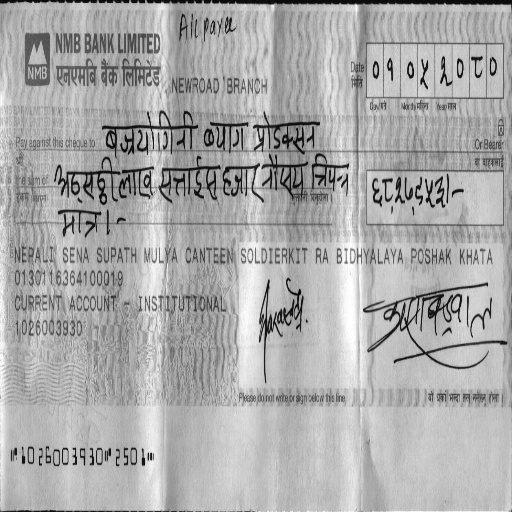 A/c payee
NMB BANK LIMITED
एनएमबि बैंक लिमिटेड
NEWROAD BRANCH
Date
मिति
०१ ०५ २०८०
Day/गते Month/महिना Year/साल
Pay against this cheque to
बज्रयोगिनी ब्याग प्रोडक्सन
Or Bearer
वा वाहकलाई
the sum of
अठ्सठ्ठी लाख सत्ताईस हजार नौसय त्रिपन्न
मात्र।-
६८,२७,९५३/-
NEPALI SENA SUPATH MULYA CANTEEN SOLDIERKIT RA BIDHYALAYA POSHAK KHATA
0130116364100019
CURRENT ACCOUNT - INSTITUTIONAL
1026003930
Please do not write or sign below this line
⑈1026003930⑈2501⑈